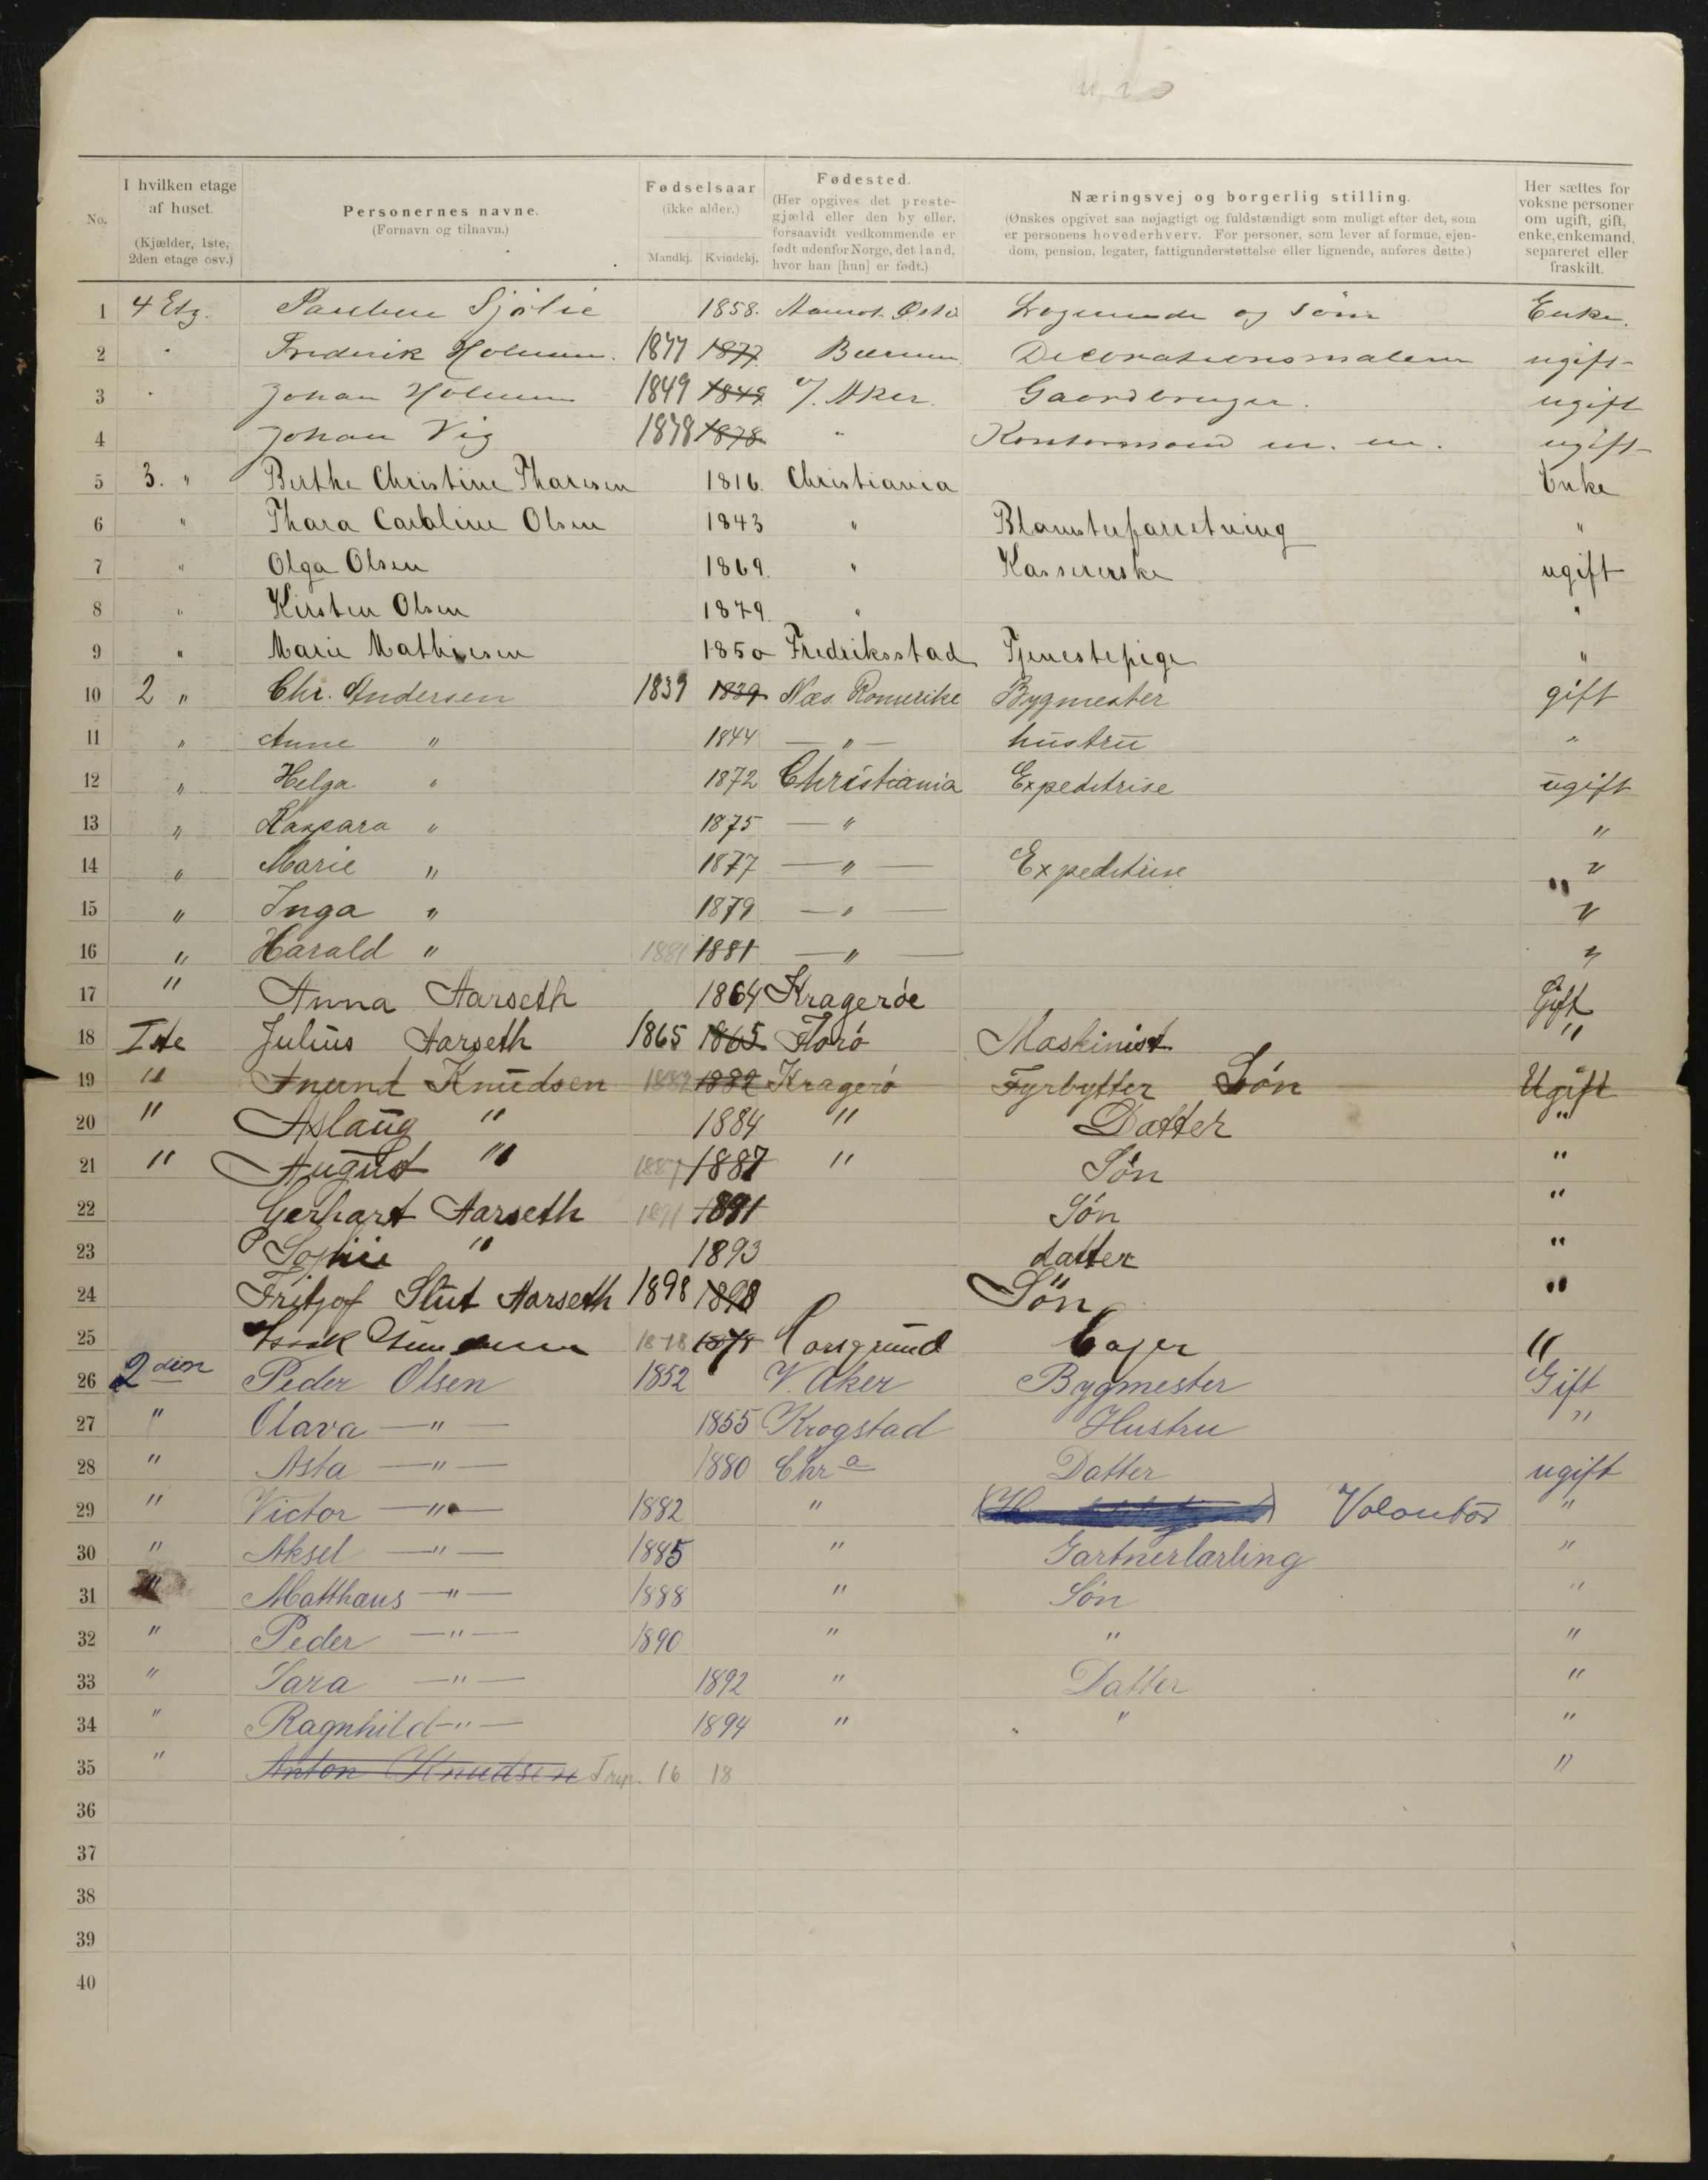 No.
I hvilken etage af huset. (Kjælder, 1ste, 2den etage osv.)
Personernes navne. (Fornavn og tilnavn.)
Fødselsaar (ikke alder.) Mandkj. Kvindekj.
Fødested. (Her opgives det prestegjæld eller den by eller, forsaavidt vedkommende er født udenfor Norge, det land, hvor han [hun] er født.)
Næringsvej og borgerlig stilling. (Ønskes opgivet saa nøjagtigt og fuldstændigt som muligt efter det, som er personens hovederhverv. For personer, som lever af formue, ejendom, pension, legater, fattigunderstøttelse eller lignende, anføres dette.)
Her sættes for voksne personer om ugift, gift, enke, enkemand, separeret eller fraskilt.
1 4 Etg. Sjølie 1858. Enke.
2 " Frederik Holmen. 1877 1877 Bærum Decorationsmaler ugift
3 " Johan Holmen 1849 1849 Aker. Gaardbruger. ugift
4 Johan Vig 1878 1878 " Kontormand m. m. ugift
5 3. " Berthe Christine Tharesen 1816. Christiania Enke
6 " Thara Caroline Olsen 1843 " Blomsterforretning "
7 " Olga Olsen 1869. " Kassererske ugift
8 " Kirsten Olsen 1879. " "
9 " Marie Mathiesen 1850 Fredriksstad Tjenestepige "
10 2 " Chr. Andersen 1839 1839 Næs. Romerike Bygmester gift
11 " Anne " 1844 — " — hustru "
12 " Helga " 1872 Christiania Expeditrise ugift
13 " Kaspara " 1875 — " "
14 " Marie " 1877 — " — Expeditrise "
15 " Inga " 1879 — " — "
16 " Harald " 1881 1881 — " — "
17 " Anna Aarseth 1864 Kragerøe Gift
18 1ste Julius Aarseth 1865 1865 Florø Maskinist "
19 " Anund Knudsen 1882 1882 Kragerø Fyrbytter Søn Ugift
20 " Aslaug " 1884 " Datter "
21 " August " 1887 1887 " Søn "
22 Gerhart Aarseth 1891 1891 Søn "
23 Sophie " 1893 datter "
24 Fritjof Slut Aarseth 1898 1898 Søn "
25 Isak 1878 1878 Porsgrund "
26 2den Peder Olsen 1852 V. Aker Bygmester Gift
27 " Olava — " — 1855 Krogstad Hustru "
28 " Asta — " — 1880 Chra Datter ugift
29 " Victor — " — 1882 " Volontør "
30 " Aksel — " — 1885 " Gartnerlærling "
31 " Matthæus — " — 1888 " Søn "
32 " Peder — " — 1890 " " "
33 " Sara — " — 1892 " Datter "
34 " Ragnhild — " — 1894 " " "
35 " Anton Knudsen 16 18 "
36
37
38
39
40